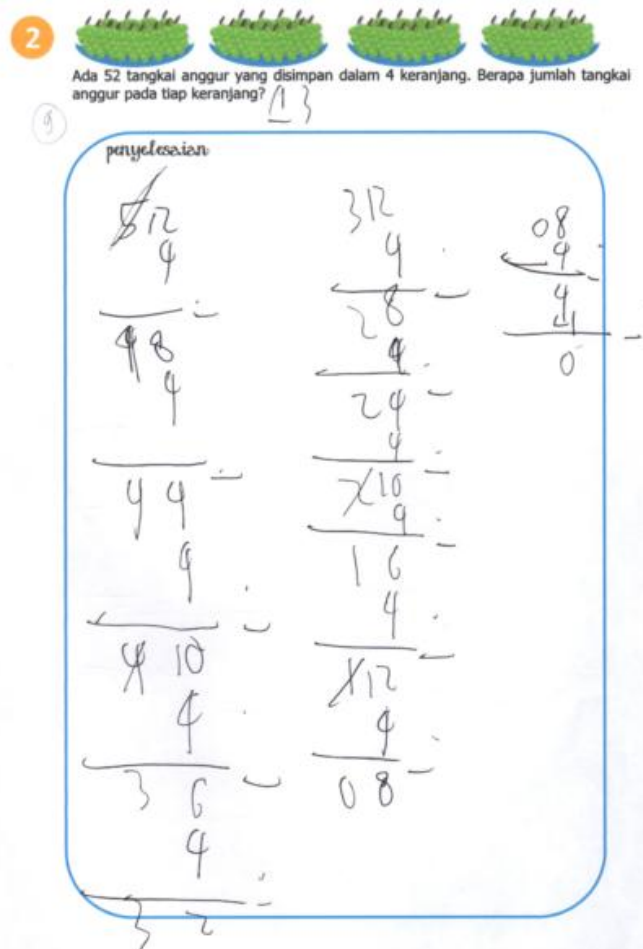 2
Ada 52 tangkai anggur yang disimpan dalam 4 keranjang. Berapa jumlah tangkai
anggur pada tiap keranjang? 13
9
penyelesaian
5 12
4
-
4 8
4
-
4 4
4
-
4 10
4
-
3 6
4
-
3 2
3 12
4
-
2 8
4
-
2 4
4
-
2 10
4
-
1 6
4
-
1 12
4
-
0 8
0 8
4
-
4
4
-
0